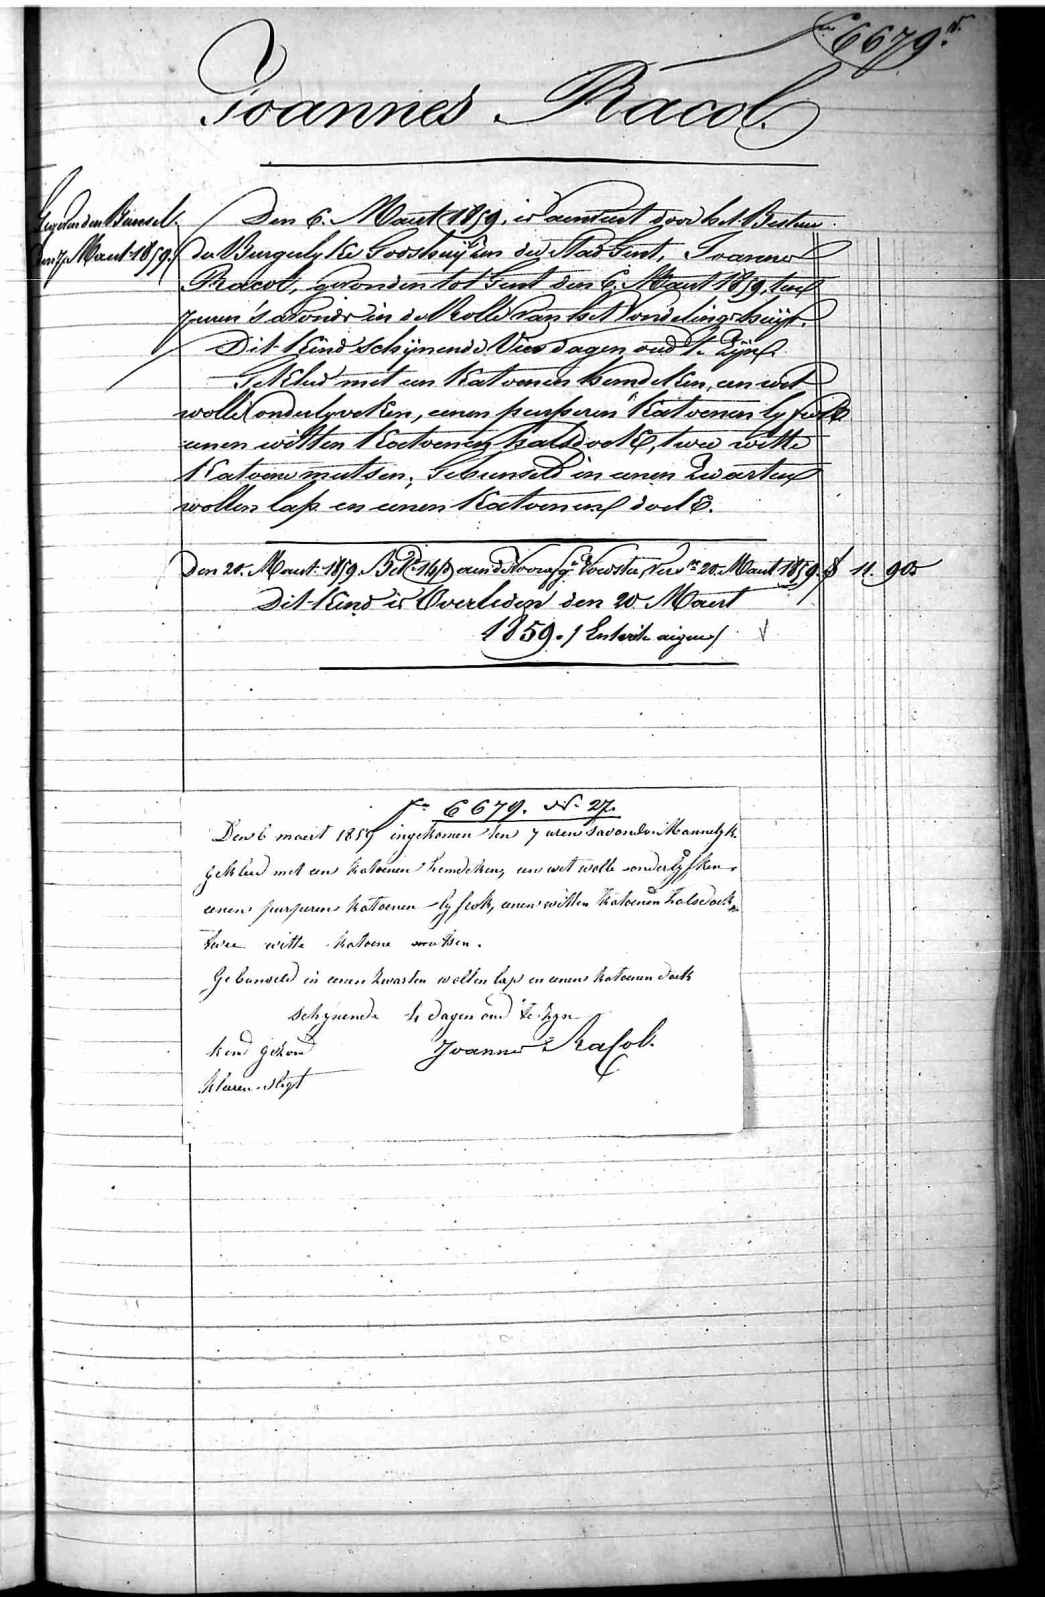 Fo 6679. N.
Joannes Racol.
Den 7 Maert 1859.
Den 6. Maert 1859. is aenveert door het Bestuer
der Burgerlyke Godshuyzen der Stad Gent, Joannes
Racol, gevonden tot Gent den 6. Maert 1859, ten
7 uren 's avonds in de Rolle van het Vondelingshuys.
Dit Kind schijnende Vier dagen oud te Zijn.
Gekleed met een Katoenen hemdeken, een wit
wolle onderlyveken, eenen purperen Katoenen lyfrok
eenen witten Katoenen halsdoek, twee witte
Katoene mutsen, Gebunseld in eenen Zwarten
wollen lap en eenen Katoenen doek.
Den 20. Maert 1859. aen de Voorsz. Voedster, 20. Maert 1859. 11. 90
Dit Kind is Overleden den 20 Maert
1859.
Fo 6679. N. 27.
Den 6 maert 1859 ingekomen ten 7 uren savonds Mannelyk
gekleed met een katoenen hemdeken, een wit wolle onderlyfken
eenen purperen katoenen lyfrok, eenen witten katoenen halsdoek,
twee witte katoene mutsen.
Gebunseld in eenen zwarten wollen lap en eenen katoenen doek
schynende 4 dagen oud te zyn
kind gezond
Joannes Racol.
kleeren slegt